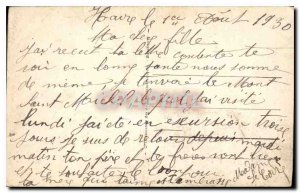 Havre le 1er Août 1930
Ma chère fille
j'ai recut ta lettre contente te
voir en bonne santé nous somme
de même je t'envoie le Mont
Saint Michel que j'ai visité
lundi j'ai été en excursion trois
jours je suis de retour depuis mardi
matin ton père et tes
et te souhaite le bonjour
ta mère qui t'embrasse